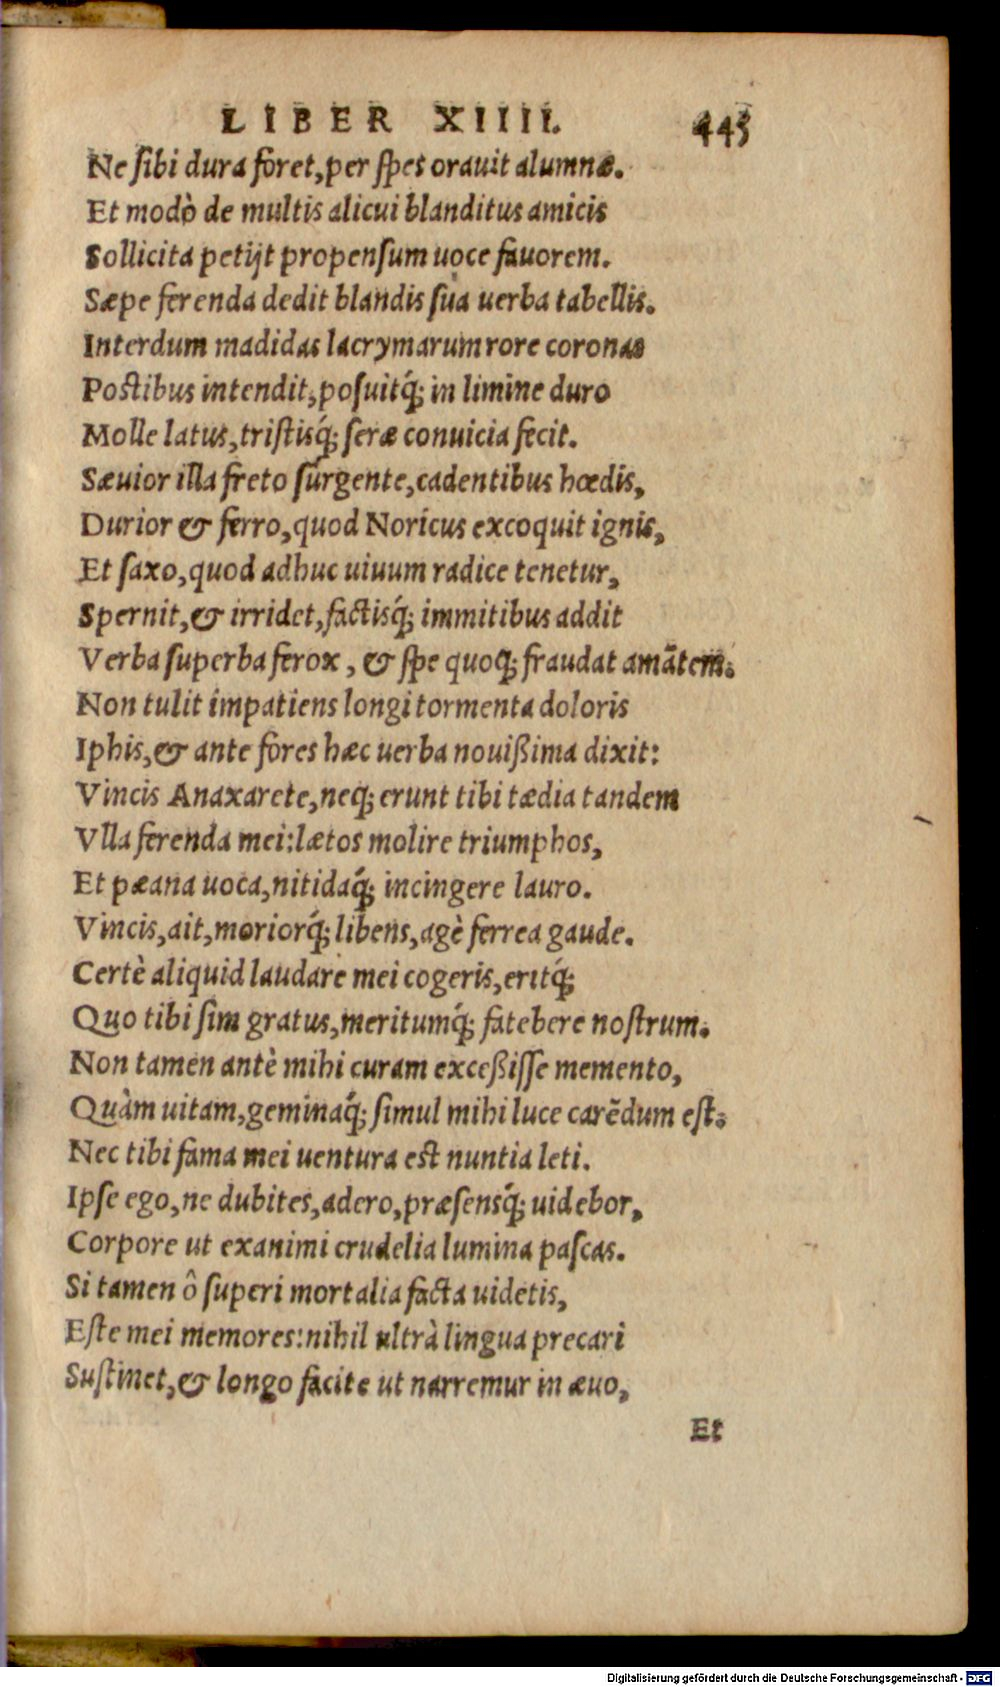 LIBER XIIII. 445
Ne ſibi dura foret, per ſpes orauit alumnæ.
Et modò de multis alicui blanditus amicis
Sollicita petijt propenſum uoce fauorem.
Sæpe ferenda dedit blandis ſua uerba tabellis.
Interdum madidas lacrymarum rore coronas
Poſtibus intendit, poſuitq́; in limine duro
Molle latus, triſtisq́; ſeræ conuicia fecit.
Sæuior illa freto ſurgente, cadentibus hœdis,
Durior & ferro, quod Noricus excoquit ignis,
Et ſaxo, quod adhuc uiuum radice tenetur,
Spernit, & irridet, factisq́; immitibus addit
Verba ſuperba ferox, & ſpe quoq; fraudat amãtem.
Non tulit impatiens longi tormenta doloris
Iphis, & ante fores hæc uerba nouißima dixit:
Vincis Anaxarete, neq; erunt tibi tædia tandem
Vlla ferenda mei: lætos molire triumphos,
Et pæana uoca, nitidaq́; incingere lauro.
Vincis, ait, moriorq́; libens, agè ferrea gaude.
Certè aliquid laudare mei cogeris, eritq́;
Quo tibi ſim gratus, meritumq́; fatebere noſtrum.
Non tamen antè mihi curam exceßiſſe memento,
Quàm uitam, geminaq́; ſimul mihi luce carẽdum eſt.
Nec tibi fama mei uentura eſt nuntia leti.
Ipſe ego, ne dubites, adero, præſensq́; uidebor,
Corpore ut exanimi crudelia lumina paſcas.
Si tamen ô ſuperi mortalia facta uidetis,
Eſte mei memores: nihil ultrà lingua precari
Suſtinet, & longo facite ut narremur in æuo,
Et
Digitalisierung gefördert durch die Deutsche Forschungsgemeinschaft - DFG